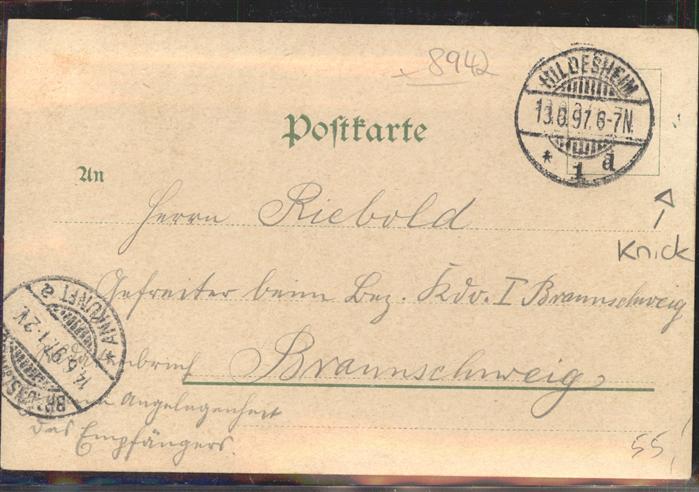 8942
HILDESHEIM
13.6.97. 6-7N.
* 1 a
Postkarte
An
Herrn Riebold
Knick
Gefreiter beim Bez. Kdo. I Braunschweig
* ANKUNFT a
14.6.97. 1-2V.
Braunschweig
Angelegenheit
des Empfängers.
55